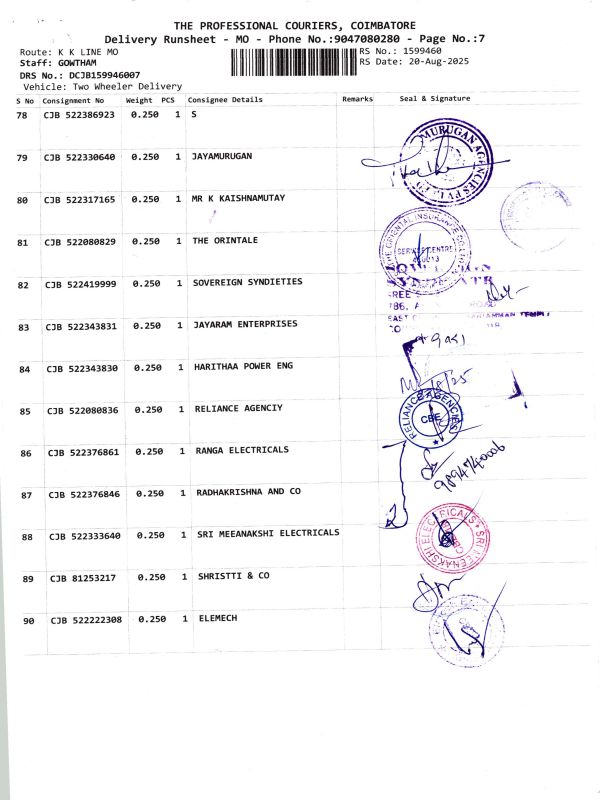 THE PROFESSIONAL COURIERS, COIMBATORE
Delivery Runsheet - MO - Phone No.:9047080280 - Page No.:7
Route: K K LINE MO
RS No.: 1599460
Staff: GOWTHAM
RS Date: 20-Aug-2025
DRS No.: DCJB159946007
Vehicle: Two Wheeler Delivery
S No Consignment No Weight PCS Consignee Details Remarks Seal & Signature
78 CJB 522386923 0.250 1 S
79 CJB 522330640 0.250 1 JAYAMURUGAN
80 CJB 522317165 0.250 1 MR K KAISHNAMUTAY
81 CJB 522080829 0.250 1 THE ORINTALE
THE ORIENTAL INSURANCE CO
SERVICE CENTRE
82 CJB 522419999 0.250 1 SOVEREIGN SYNDIETIES
83 CJB 522343831 0.250 1 JAYARAM ENTERPRISES
84 CJB 522343830 0.250 1 HARITHAA POWER ENG
85 CJB 522080836 0.250 1 RELIANCE AGENCIY
RELIANCE AGENCIES
CBE
86 CJB 522376861 0.250 1 RANGA ELECTRICALS
9894740006
87 CJB 522376846 0.250 1 RADHAKRISHNA AND CO
88 CJB 522333640 0.250 1 SRI MEEANAKSHI ELECTRICALS
SRI MEENAKSHI ELECTRICALS
89 CJB 81253217 0.250 1 SHRISTTI & CO
90 CJB 522222308 0.250 1 ELEMECH